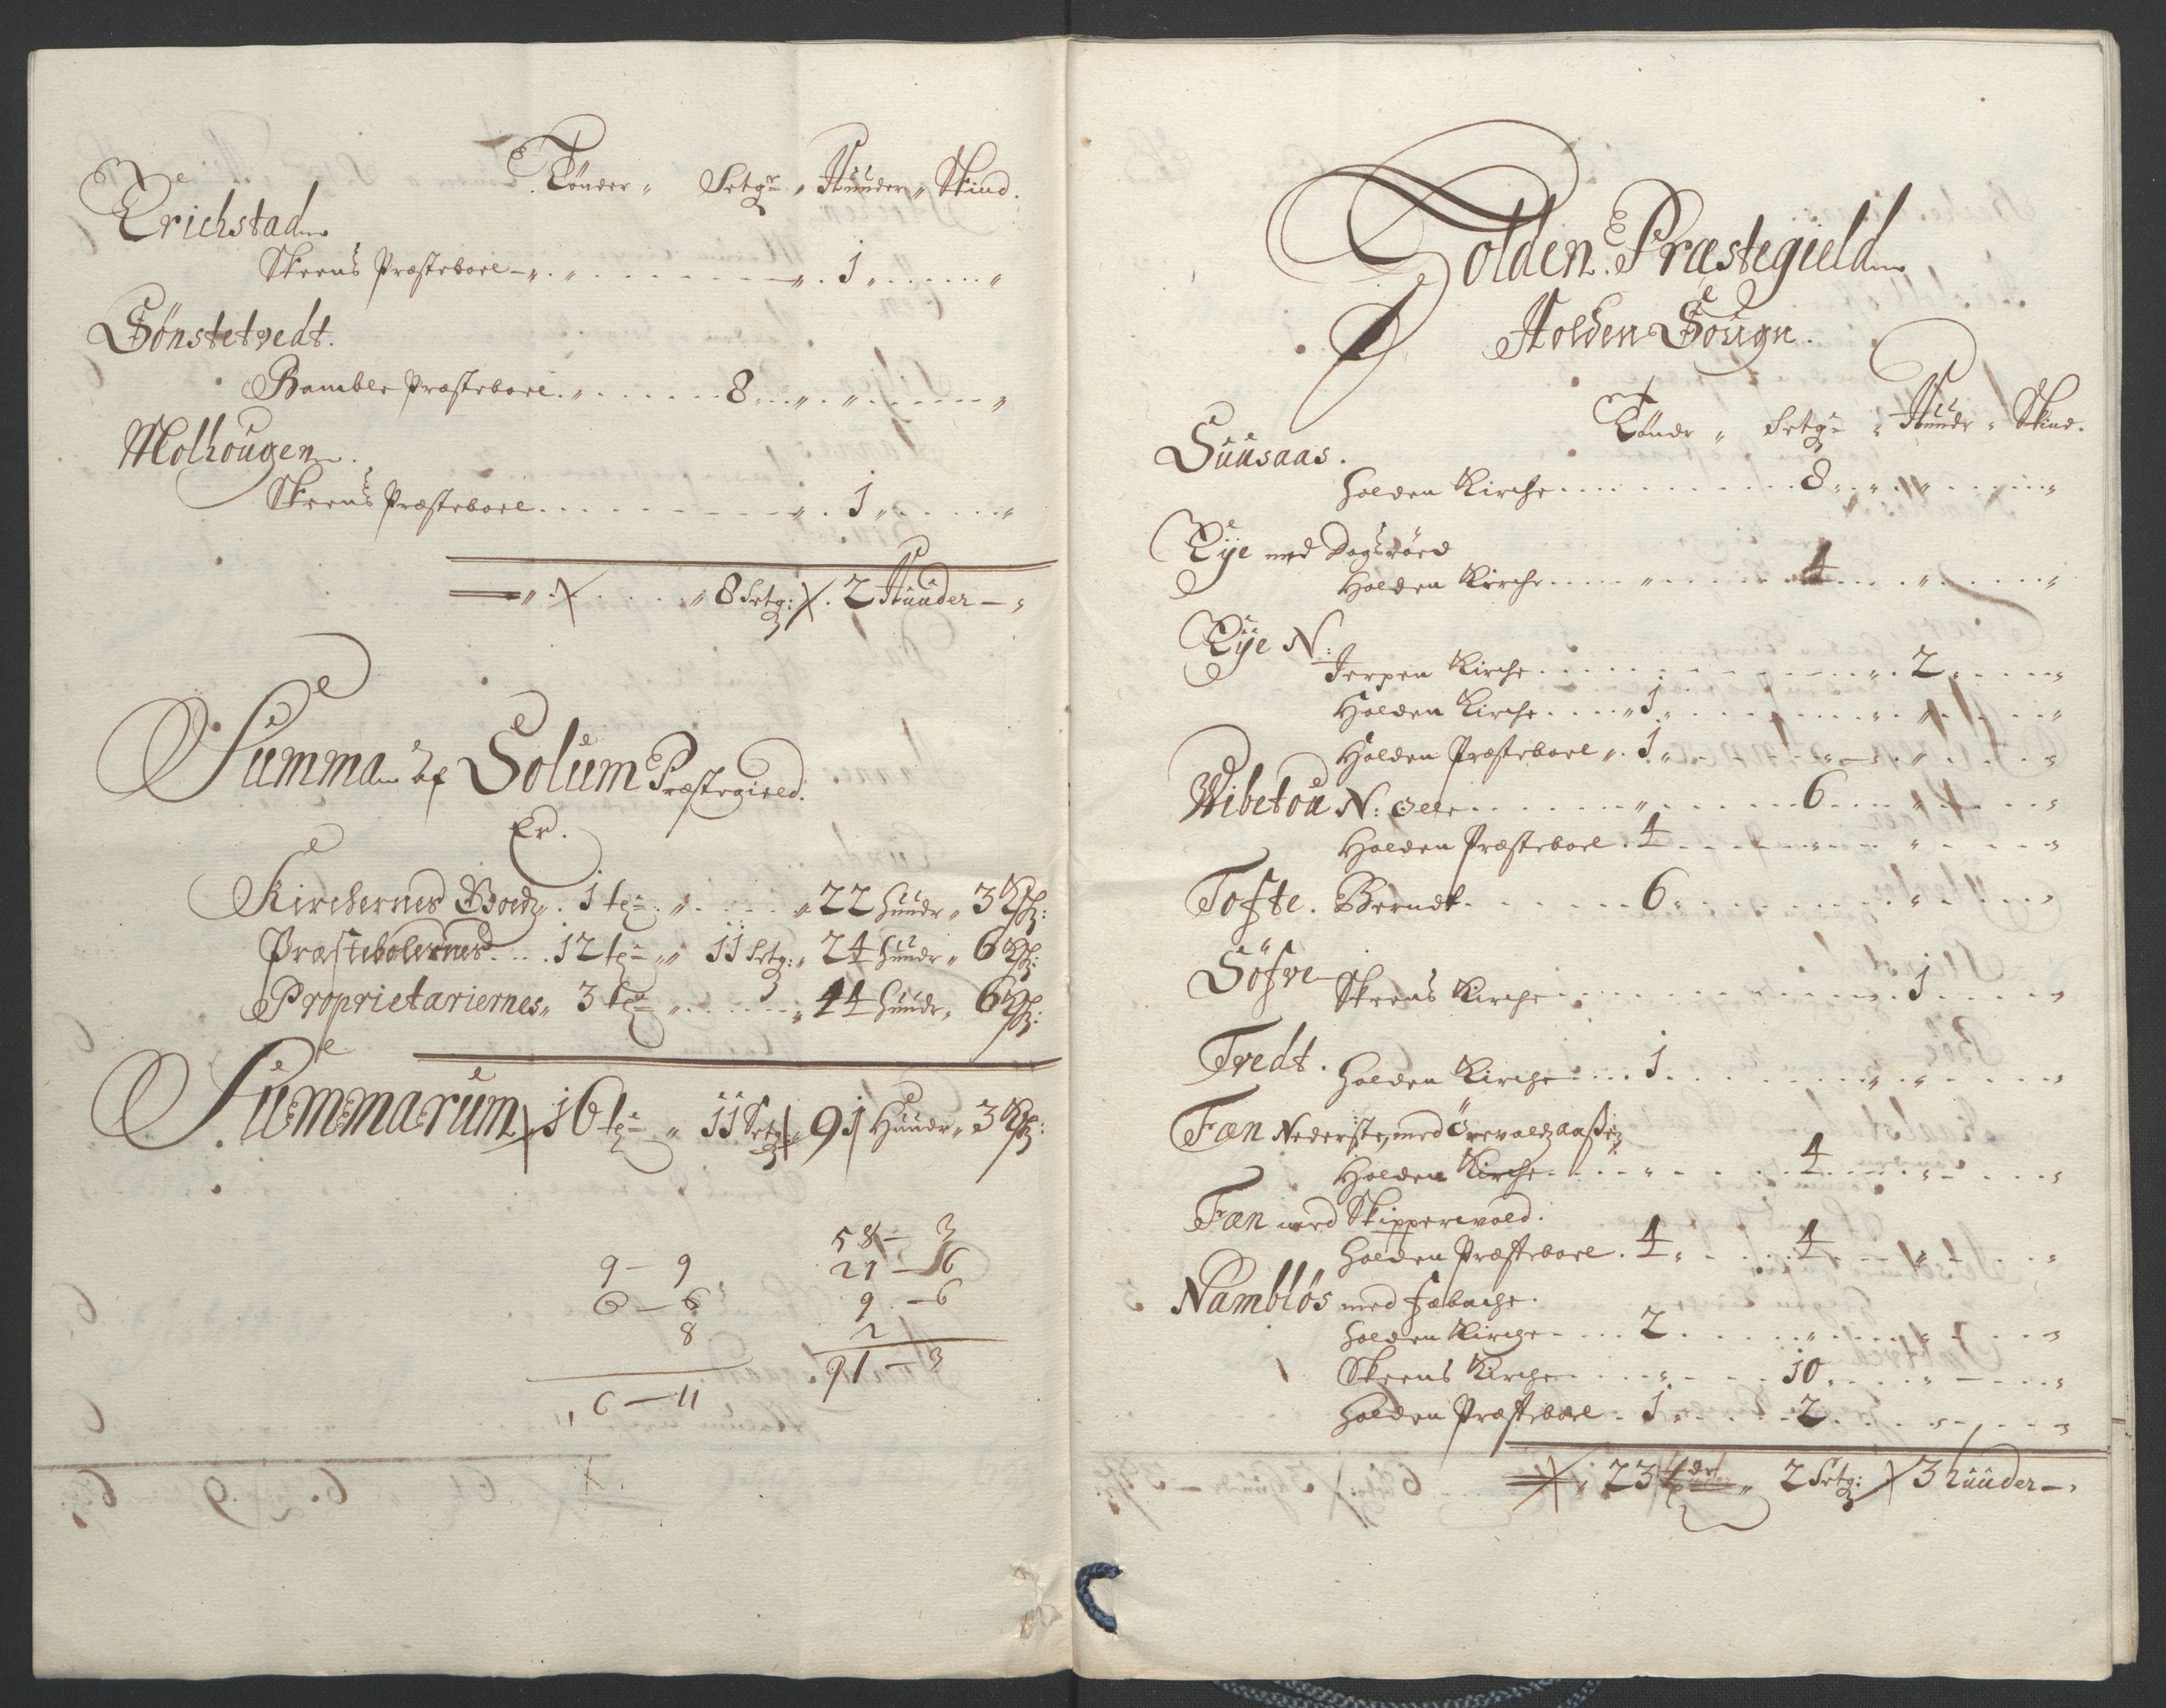 Tönder " Setgr " Huuder " Skind.
Erichstad
Skeens Præsteboel - " . " . . . . " . 1 " . . . . "
Sönstetvedt.
Bamble Præsteboel . " . . . . 8 . . " . " . . . . "
Molhougen.
Skeens Præsteboel . . . . " . 1 " . . . . "
" . . . . " 8 Setg: . 2 Huuder - "
Summa af Solum Præstegield.
Er.
Kirchernes Goedz . 1 tr " . . . . " 22 Huudr " 3 Sk:
Præstebolernes . . . 12 tr " " 11 Setg: " 24 Huudr " 6 Sk:
Proprietariernes " 3 tr " . . . . " 44 Huudr " 6 Sk:
Summarum 16 tr " 11 Setg: " 91 Huudr " 3 Sk:
58 - 3
9 - 9 21 - 6
6 - 6 9 - 6
8 2
91 - 3
6 - 11
Holden Præstegield
Holden Sougn.
Töndr " Setgr " Huudr " Skind.
Suusaas.
Holden Kirche . . . . 8 . . " . . " . . . . "
Eije med Dagsröed
Holden Kirche . . . " . . . . 4 . . . " . . . . "
Eije N:
Jerpen Kirche . . . . . . . . " . 2 . . . . "
Holden Kirche . . . " 1 " . . . . " . " . . . . "
Holden Præsteboel " . 1 " . . . . " . " . . . . "
Wibetou N: Oele . . . . " . . . . 6 . . . " . . . . "
Holden Præsteboel . 4 . . . . " . . " . . . . "
Tofte. Berndt . . . . 6 . . . . . . " . . . . "
Söfve
Skeens Kirche . . . . . . . . " . 1 . . . . "
Tvedt. Holden Kirche . . . 1 . . . . " . " . . . . "
Fæn Nederste, med Örevaldzaasen
Holden Kirche . . . " . . . . 4 . . . " . . . . "
Fæn med Skipperevold.
Holden Præsteboel . 4 " . . . . 4 . . . " . . . . "
Namblös med Fæbache.
Holden Kirche . . . . 2 . . . . " . . . " . . . . "
Skeens Kirche . . . . " . . . 10 . . . " . . . . "
Holden Præsteboel . 1 " . . . . 2 . . . " . . . . "
" 23 tdr " 2 Setg: 3 huuder - "